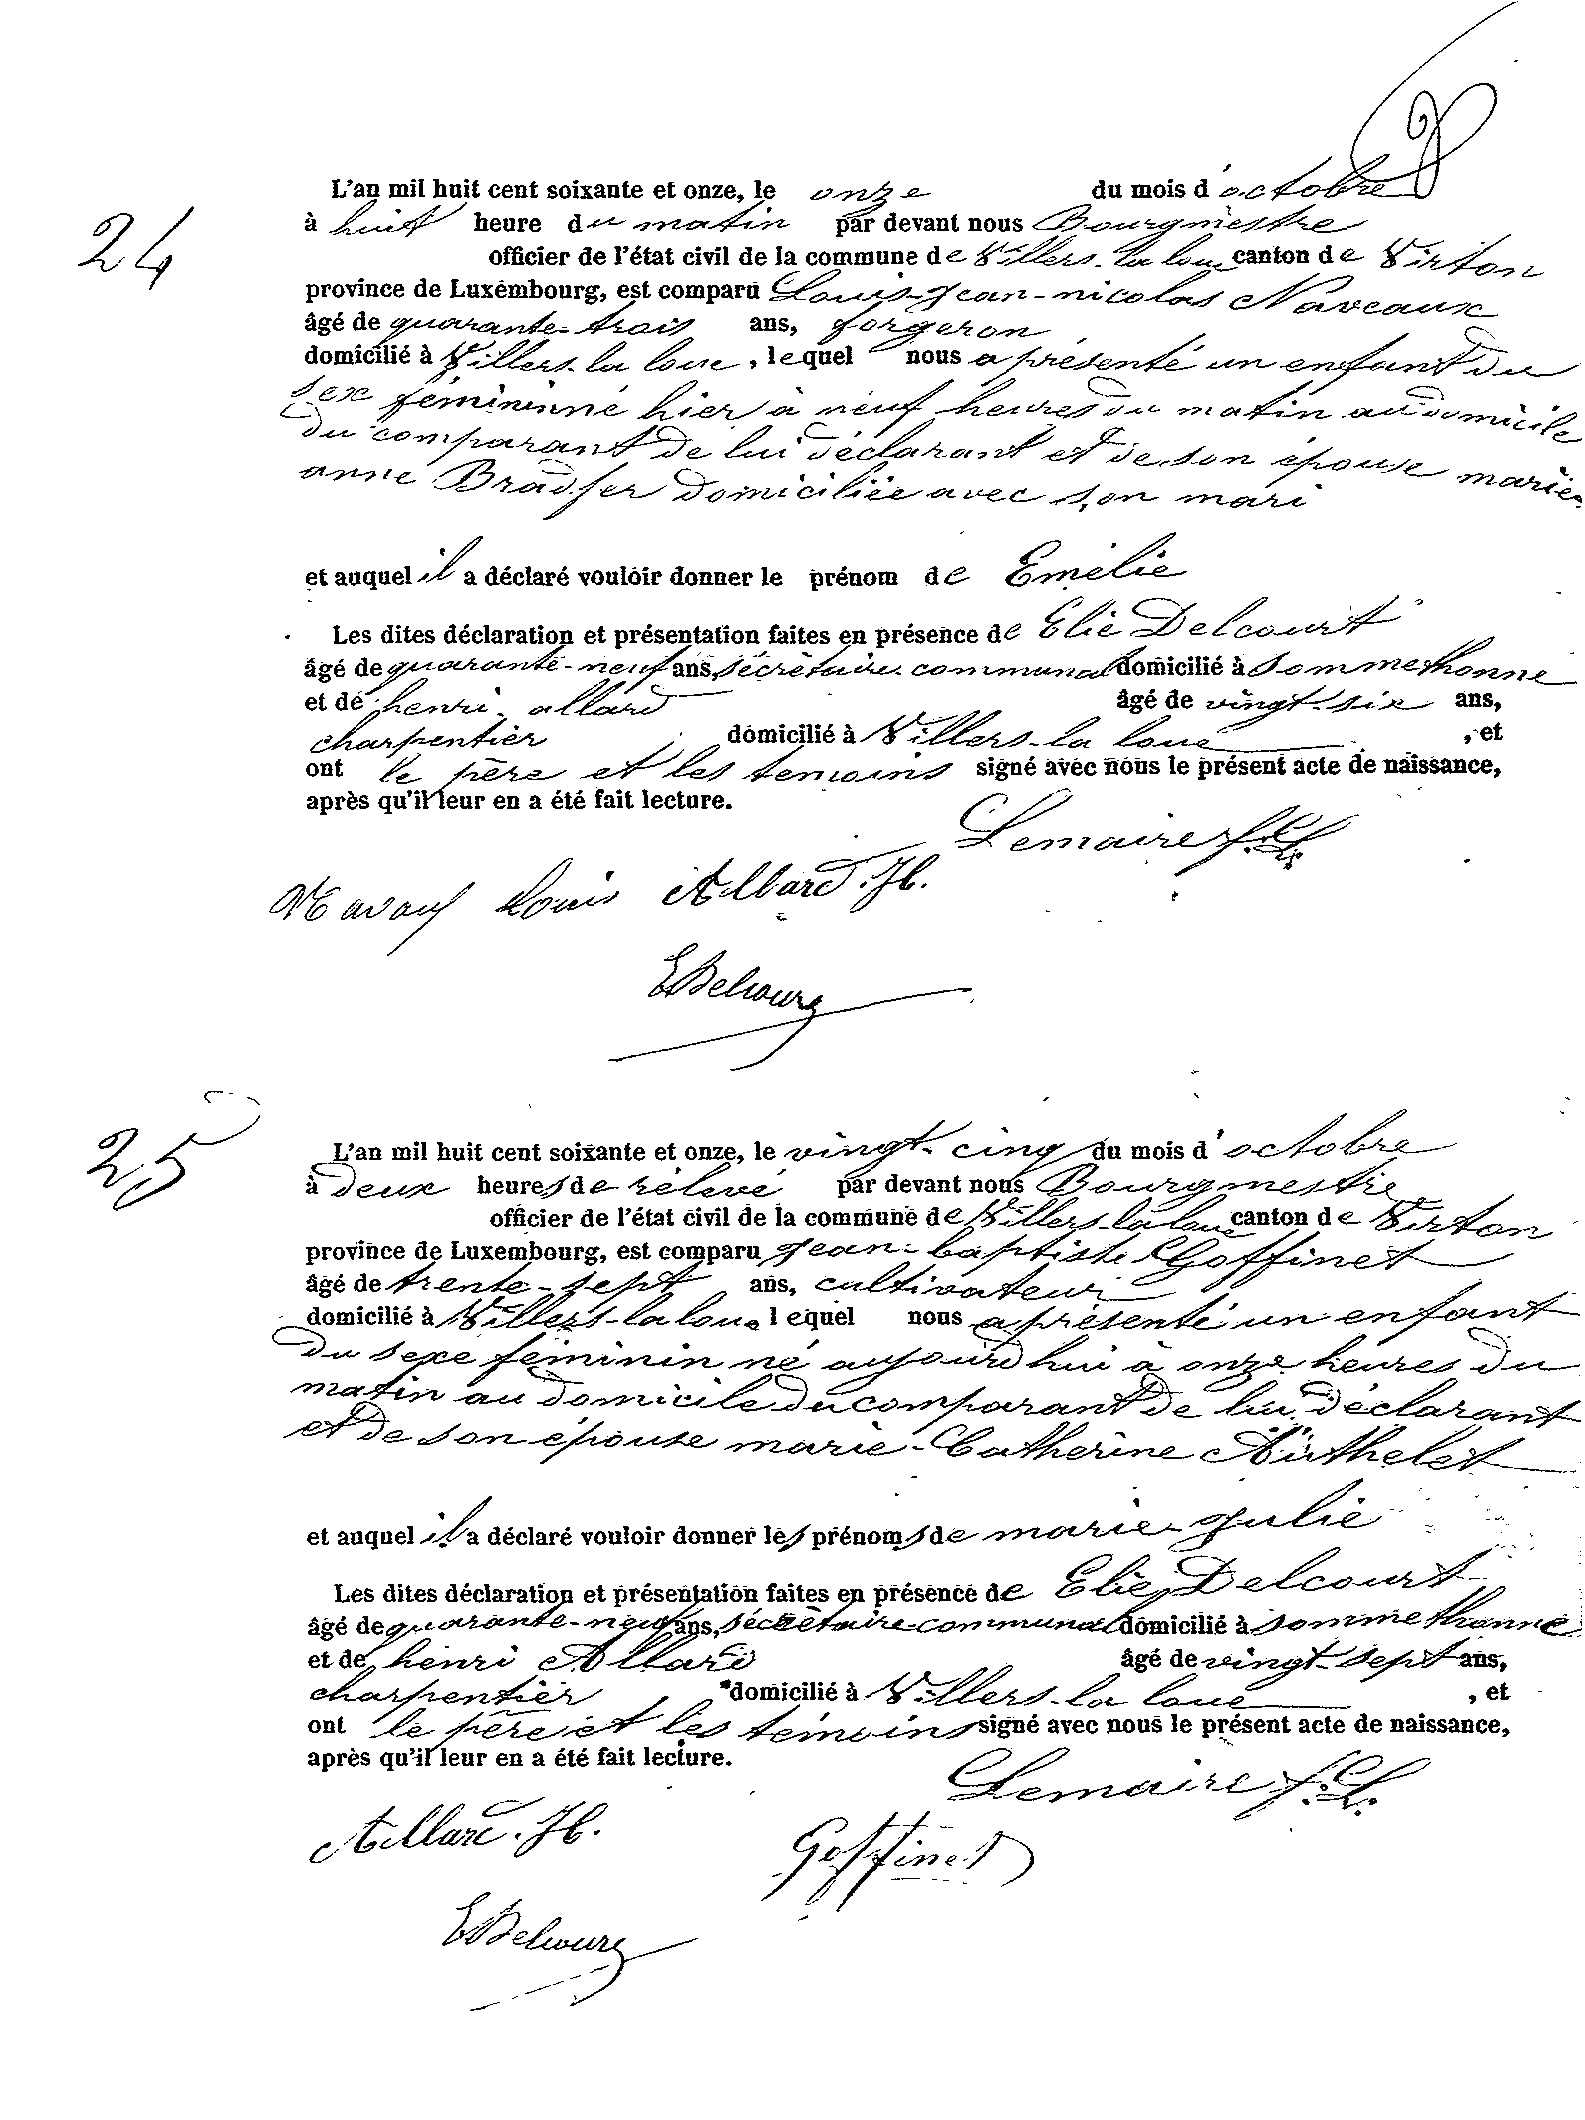 24
L'an mil huit cent soixante et onze, le onze du mois d'octobre
à huit heure du matin par devant nous Bourgmestre
officier de l'état civil de la commune de Villers-la loue canton de Virton
province de Luxembourg, est comparu Louis-Jean-nicolas Naveaux
âgé de quarante-trois ans, forgeron
domicilié à Villers-la loue, lequel nous a présenté un enfant du
sex féminin né hier à neuf heures du matin au domicile
du comparant de lui déclarant et de son épouse marie
anne Bradfer domiciliée avec son mari
et auquel il a déclaré vouloir donner le prénom de Emélie
Les dites déclaration et présentation faites en présence de Elie Delcourt
âgé de quarante-neuf ans, sécrètaire communal domicilié à sommethonne
et de henri allard âgé de vingt-six ans,
charpentier domicilié à Villers-la loue, et
ont le père et les temoins signé avec nous le présent acte de naissance,
après qu'il leur en a été fait lecture.
Lemaire f. L.
Navaux Louis Allard. H.
EDelcourt
25
L'an mil huit cent soixante et onze, le vingt-cinq du mois d'octobre
à deux heures de rélevé par devant nous Bourgmestre
officier de l'état civil de la commune de Villers-la loue canton de Virton
province de Luxembourg, est comparu Jean-baptiste Goffinet
âgé de trente-sept ans, cultivateur
domicilié à Villers-la loue lequel nous a présenté un enfant
du sexe féminin né aujourd hui à onze heures du
matin au domicile du comparant de lui déclarant
et de son épouse marie-Catherine
et auquel il a déclaré vouloir donner les prénoms de marie-Julie
Les dites déclaration et présentation faites en présence de Elie Delcourt
âgé de quarante-neuf ans, sécrètaire communal domicilié à sommethonne
et de henri Allard âgé de vingt-sept ans,
charpentier domicilié à Villers-la loue, et
ont le père et les témoins signé avec nous le présent acte de naissance,
après qu'il leur en a été fait lecture.
Lemaire f. L.
Allard. H. Goffinet
EDelcourt